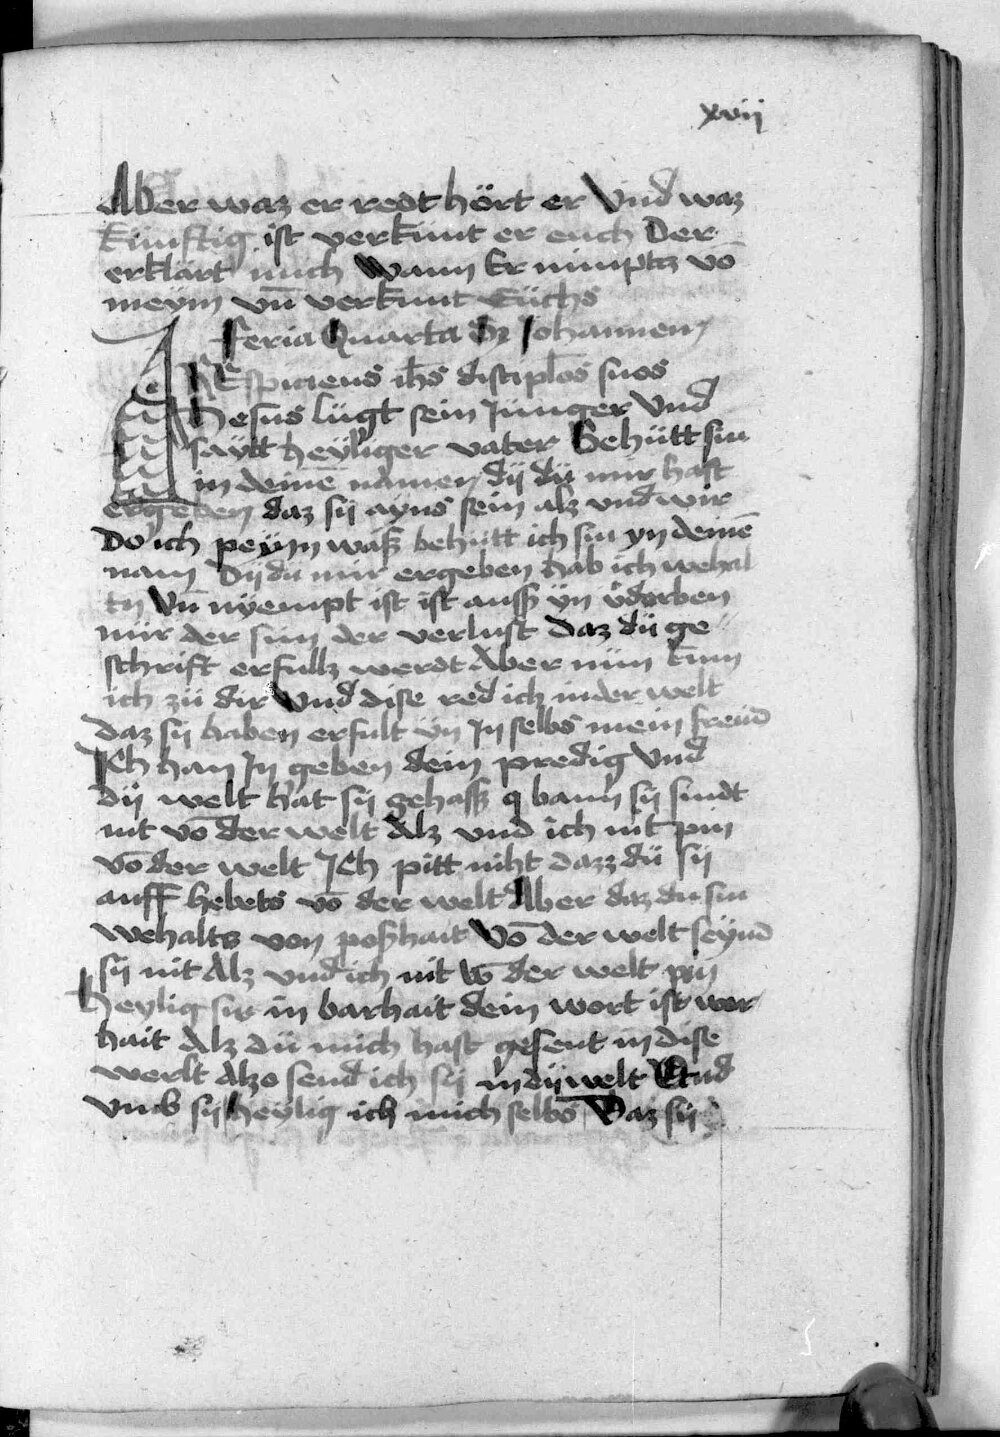 xvij
Aber waz er redt hört er Vnd waz
künftig ist verkünt er euch Der
erklärt mich Wann Er nimptz vō
meÿm vn̄ verkunt Eüchs
Feria Quarta Johannem
REspiciens ih̄s discipl̄os suos
Hesus lügt sein Jünger Vnd
saÿtt heÿliger vater Behütt sÿ
in deinē namen dÿ dü mir hast
ergeben daz sÿ aÿns sein alz vnd wir
Do ich peÿ yn waß behütt ich sÿ yn deinē
nam Dÿ du mir ergeben hab ich wehal
tn Vn̄ nÿempt ist ist auß ÿn v̄dorben
nür der sün der verlust Daz dü ge
schrift erfullz werdt Aber nün kum
ich zü dir Vnd dise red ich in der welt
daz sÿ haben erfult ÿn Jn selbs mein freüd
Ich han Jn geben dein predig Vnd
dÿ welt hat sÿ gehaß bann sÿ sindt
nit vō der welt Alz vnd ich nit pin
vō der welt Ich pitt niht dazz dü sÿ
auff hebets vō der welt Aber daz du sÿ
wehalts von poßhait Vō der welt seÿnd
sÿ nit Alz vnd ich nit vō der welt pin
Heylig sÿ in barhait dein wort ist wor
hait Alz dü mich hast gesent in dise
werlt Alzo send ich sÿ in dÿ welt Vnd
vmb sÿ heÿlig ich mich selbs Daz sÿ